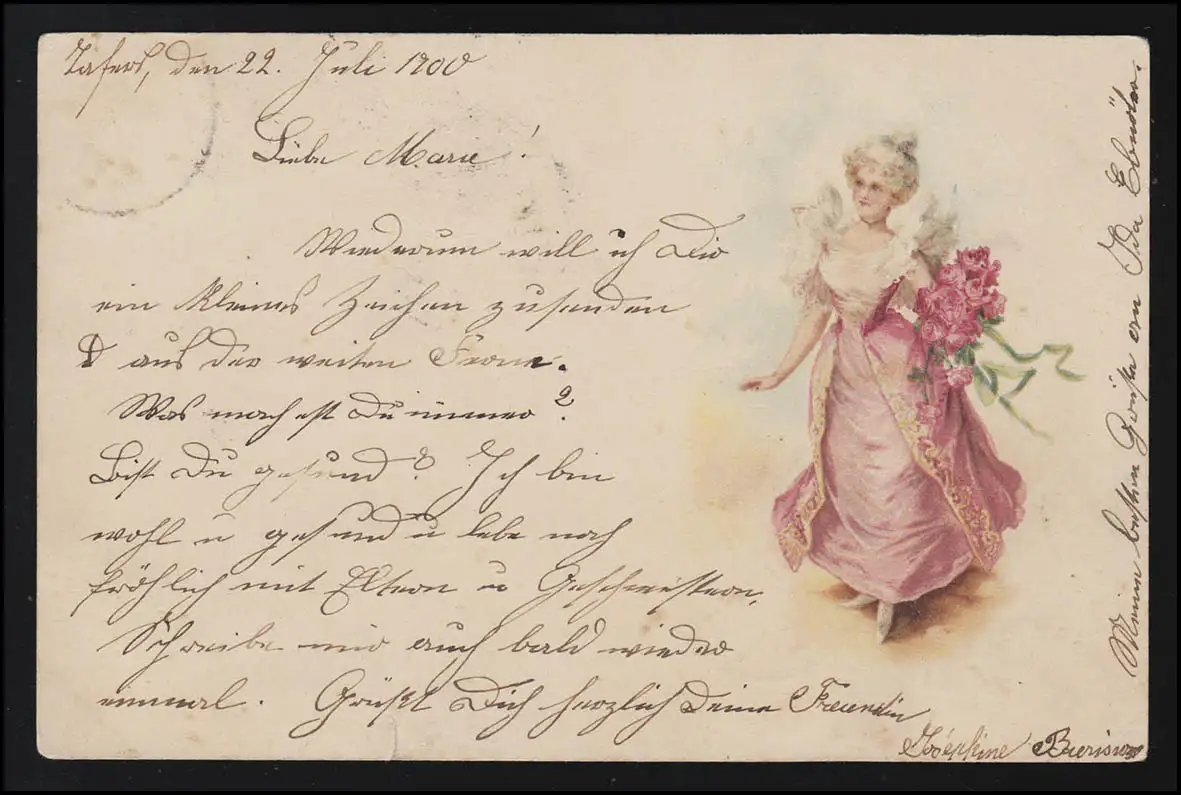 Tafers, den 22. Juli 1900
Liebe Marie!
Wiederum will ich Dir
ein kleines Zeichen zusenden
aus der weiten Ferne.
Was machest Du immer?
Bist Du gesund? Ich bin
wohl u gesund u lebe noch
fröhlich mit Eltern u Geschwistern.
Schreibe mir auch bald wieder
einmal. Grüßt Dich herzlich Deine Freundin
Joséphine
Meine besten Grüße an Ida